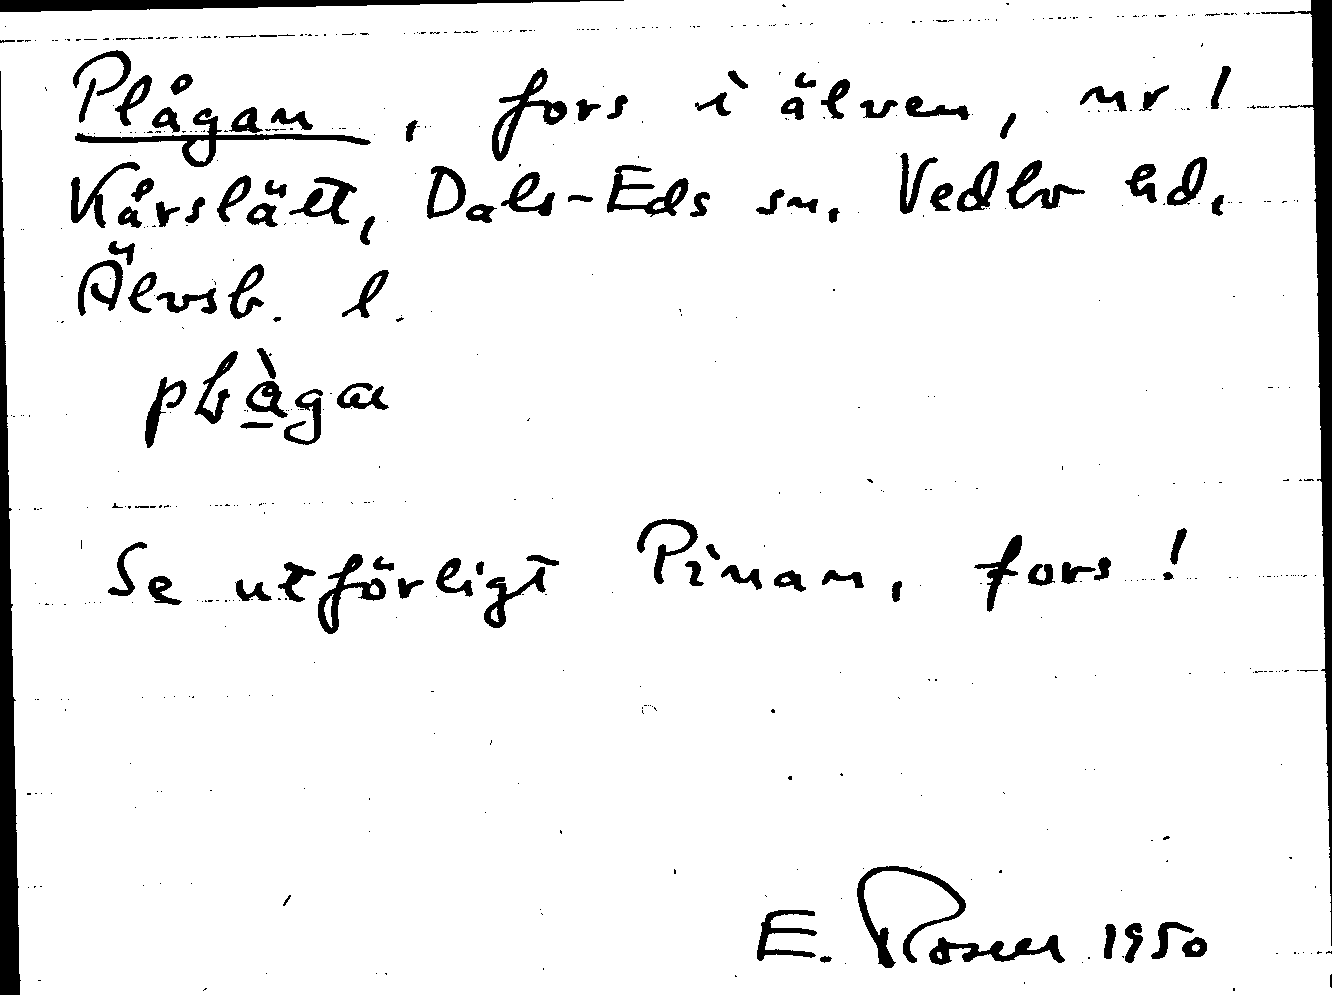 Plågan, fors i älven, nr 1
Kårslätt, Dals-Eds sn. Vedbo hd,
Älvsb. l.
Se utförligt Pinan, fors!
E. Rosen 1950